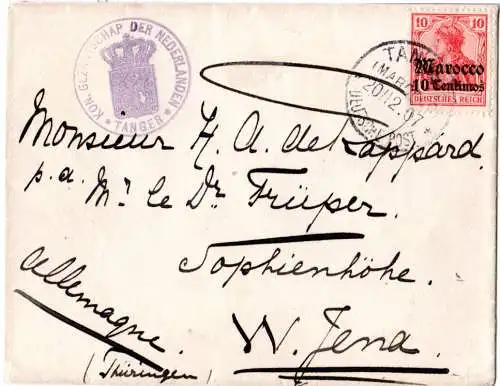 KON. GEZANTSCHAP DER NEDERLANDEN
* TANGER *
10 10
Marocco
10 Centimos
DEUTSCHES REICH
TAN
(MAR
20/12.07
Monsieur H. A. de Rappard.
p. a. Mr. le Dr. Trüper.
Sophienhöhe.
W. Jena.
Allemagne.
(Thüringen)